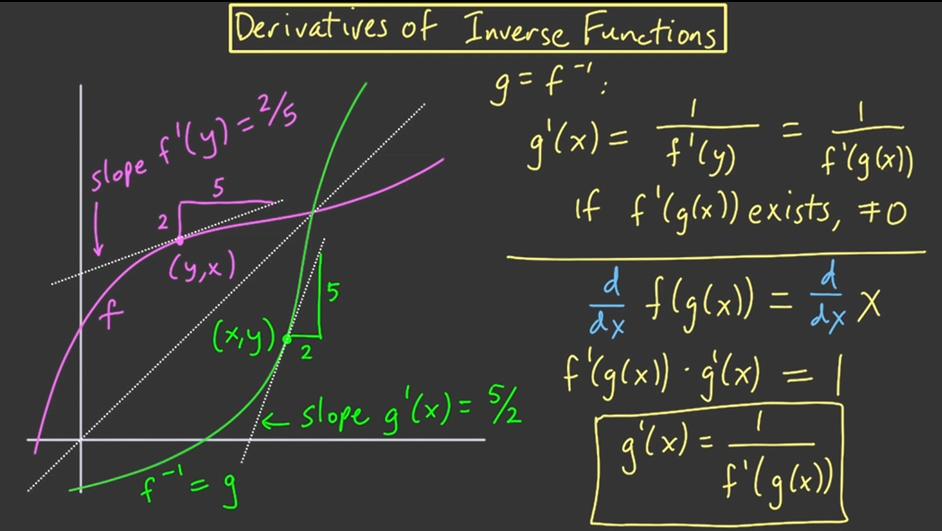 Derivatives of Inverse Functions
slope f'(y) = 2/5
5
2
(y,x)
f
(x,y)
5
2
← slope g'(x) = 5/2
f⁻¹ = g
g = f⁻¹:
g'(x) = 1/f'(y) = 1/f'(g(x))
If f'(g(x)) exists, ≠0
d/dx f(g(x)) = d/dx x
f'(g(x)) · g'(x) = 1
g'(x) = 1/f'(g(x))